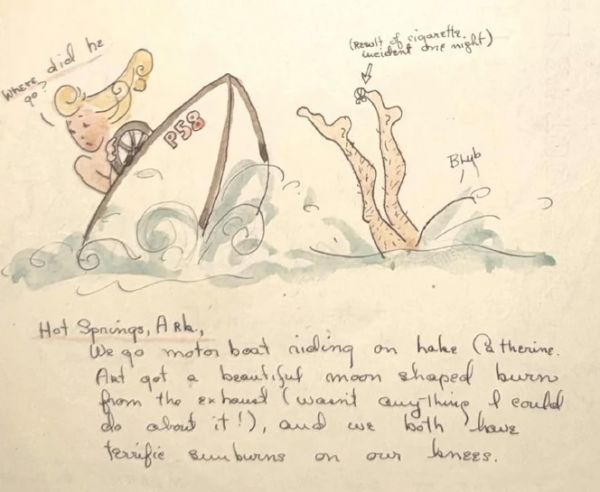 (Result of cigarette
incident one night)
Where did he
go?
P58
Blub
Hot Springs, Ark,
We go motor boat riding on Lake Catherine.
Art got a beautiful moon shaped burn
from the exhaust (wasn't anything I could
do about it!), and we both have
terrific sunburns on our knees.